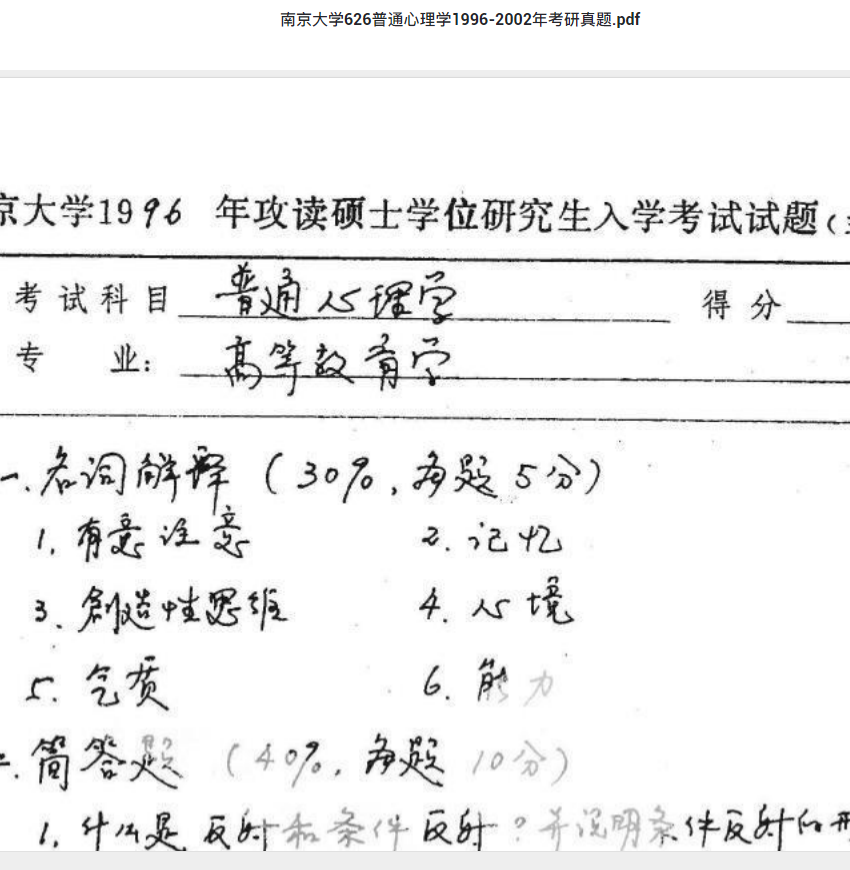 南京大学626普通心理学1996-2002年考研真题.pdf
京大学1996 年攻读硕士学位研究生入学考试试题(
考试科目 普通心理学 得分
专 业: 高等教育学
一、名词解释(30%,每题5分)
1. 有意注意 2. 记忆
3. 創造性思维 4. 心境
5. 气质 6. 能力
二、简答题 (40%,每题10分)
1. 什么是反射和条件反射?并说明条件反射的形